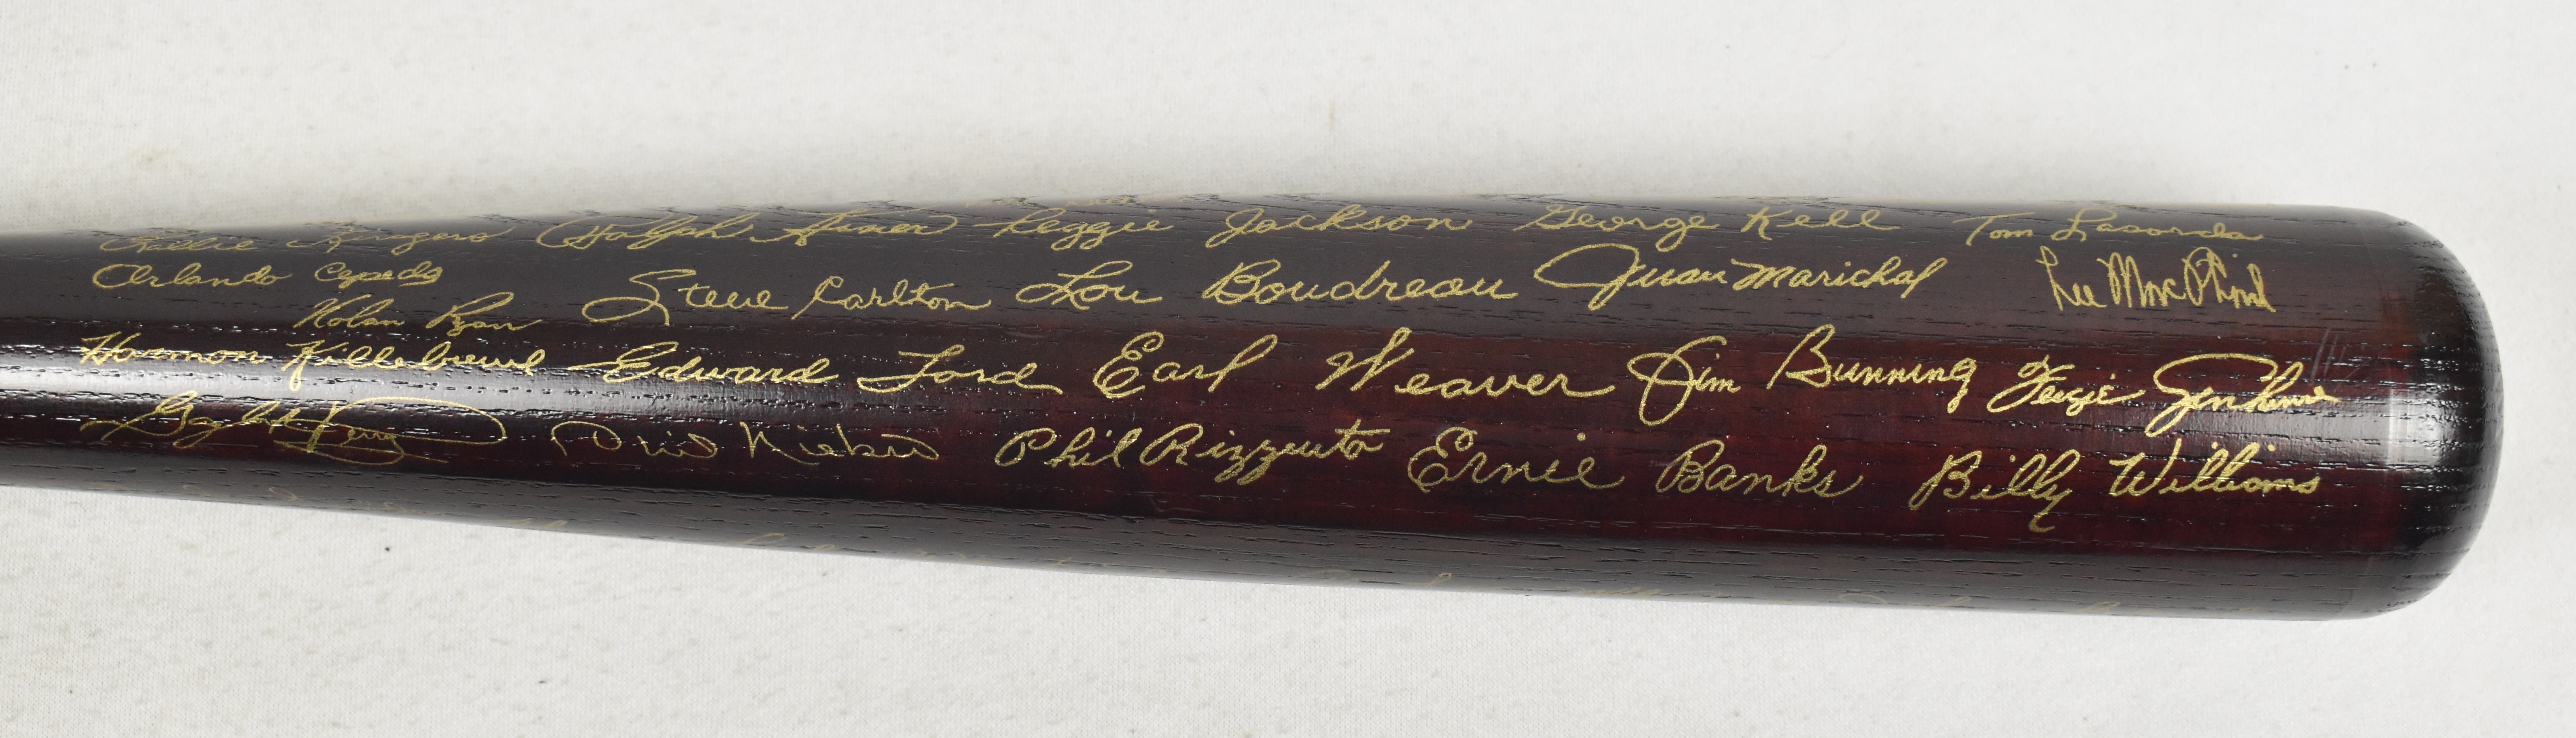 Rollie Fingers Ralph Kiner Reggie Jackson George Kell Tom Lasorda
Orlando Cepeda Steve Carlton Lou Boudreau Juan Marichal Lee MacPhail
Nolan Ryan
Harmon Killebrew Edward Ford Earl Weaver Jim Bunning Fergie Jenkins
Gaylord Perry Phil Niekro Phil Rizzuto Ernie Banks Billy Williams